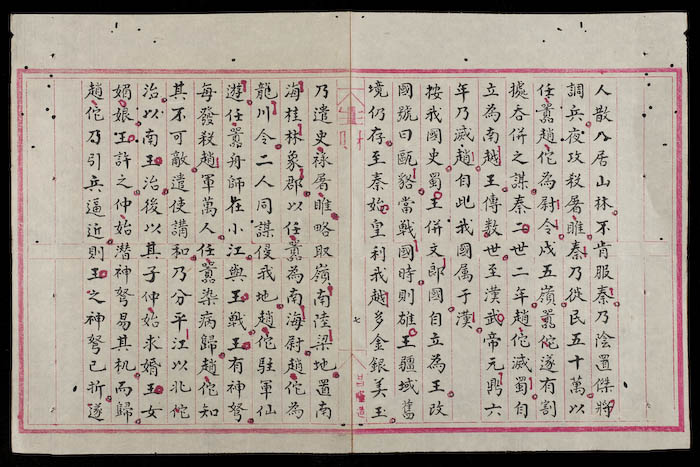 人散入居山林不肯服秦乃陰置傑將
調兵夜攻殺屠睢秦乃徙民五十萬以
任囂趙佗為尉令戍五嶺囂佗遂有割
據吞併之謀秦二世二年趙佗滅蜀自
立為南越王傳数世至漢武帝元鼎六
年乃滅趙自此我國属于漢
按我國史蜀王併文郎國自立為王改
國號曰甌貉當戰國時則雄王疆域舊
境仍存至秦始皇利我越多金銀美玉
七
乃遣史祿屠睢略取嶺南陸梁地置南
海桂林象郡以任囂為南海尉趙佗為
龍川令二人同謀侵我地趙佗駐軍仙
遊任囂舟師在小江與王戰王有神弩
每發殺趙軍萬人任囂染病歸趙佗知
其不可敵遣使講和乃分平江以北佗
治以南王治後以其子仲始求婚王女
媚娘王許之仲始潜神弩易其机而歸
趙佗乃引兵逼近則王之神弩已折遂